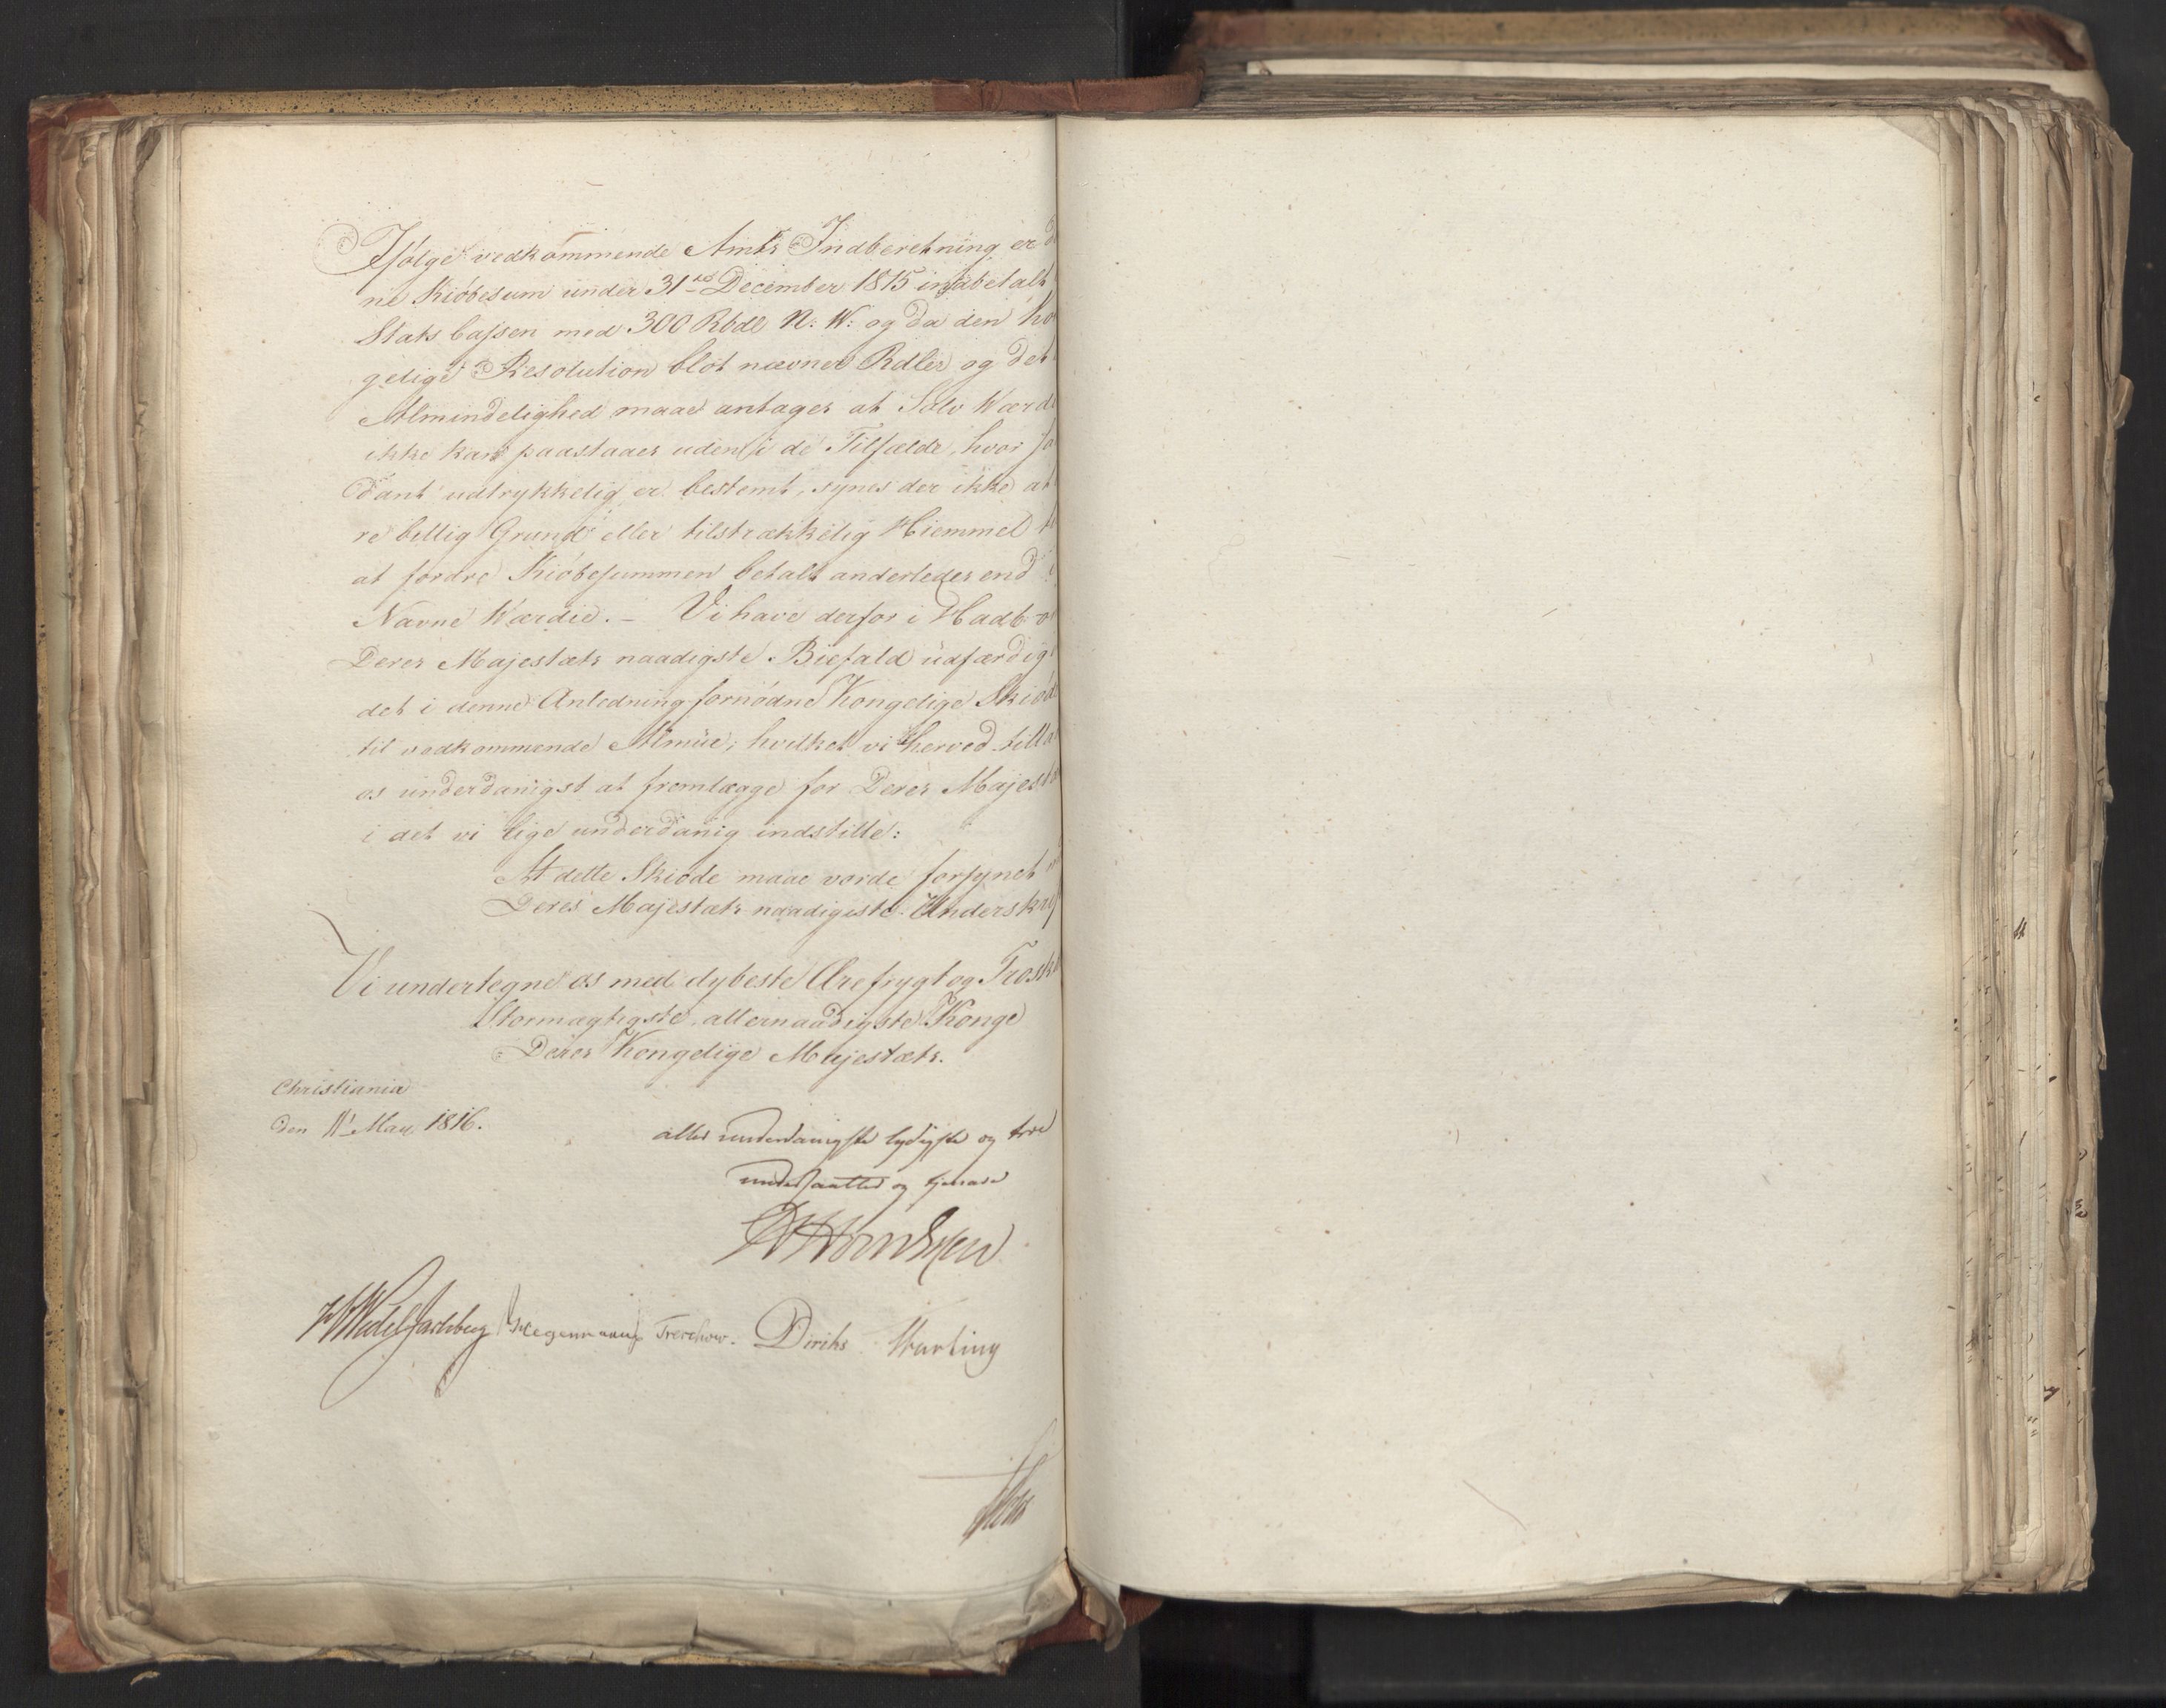 Ifølge vedkommende Amts Indberetning er d
ne Kiöbesum under 31te December 1815 indbetalt
Stats Cassen med 300 Rbdl N: W: og da den ko
gelige Resolution blot nævner Rdler og det
Almindelighed maae antages at Sølv Værd
ikke kan paastaaes uden i de Tilfælde, hvor sa
dant udtrykkelig er bestemt, synes der ikke at
re billig Grund eller tilstrækkelig Hiemmel t
at fordre Kiöbesummen betalt anderledes end i
Navne Værdie. – Vi have derfor i Haab o
Deres Majestæts naadigste Biefald udfærdig
det i denne Anledning fornødne Kongelige Skiöd
til vedkommende Almue, hvilket vi herved tilla
os underdanigst at fremlægge for Deres Majestæ
i det vi lige underdanig indstille:
At dette Skiøde maae vorde forsynet
Deres Majestæts naadigste Underskrif
Vi undertegne os med dybeste Ærefrygt og Trosk
Stormægtigste, allernaadigste Konge
Deres Kongelige Majestæts.
Christiania
den 11t May 1816.
aller underdanigste lydigste og troe
undersaatter og tjenere
HWedel Jarlsberg Hegermann Treschow. Diriks Starting